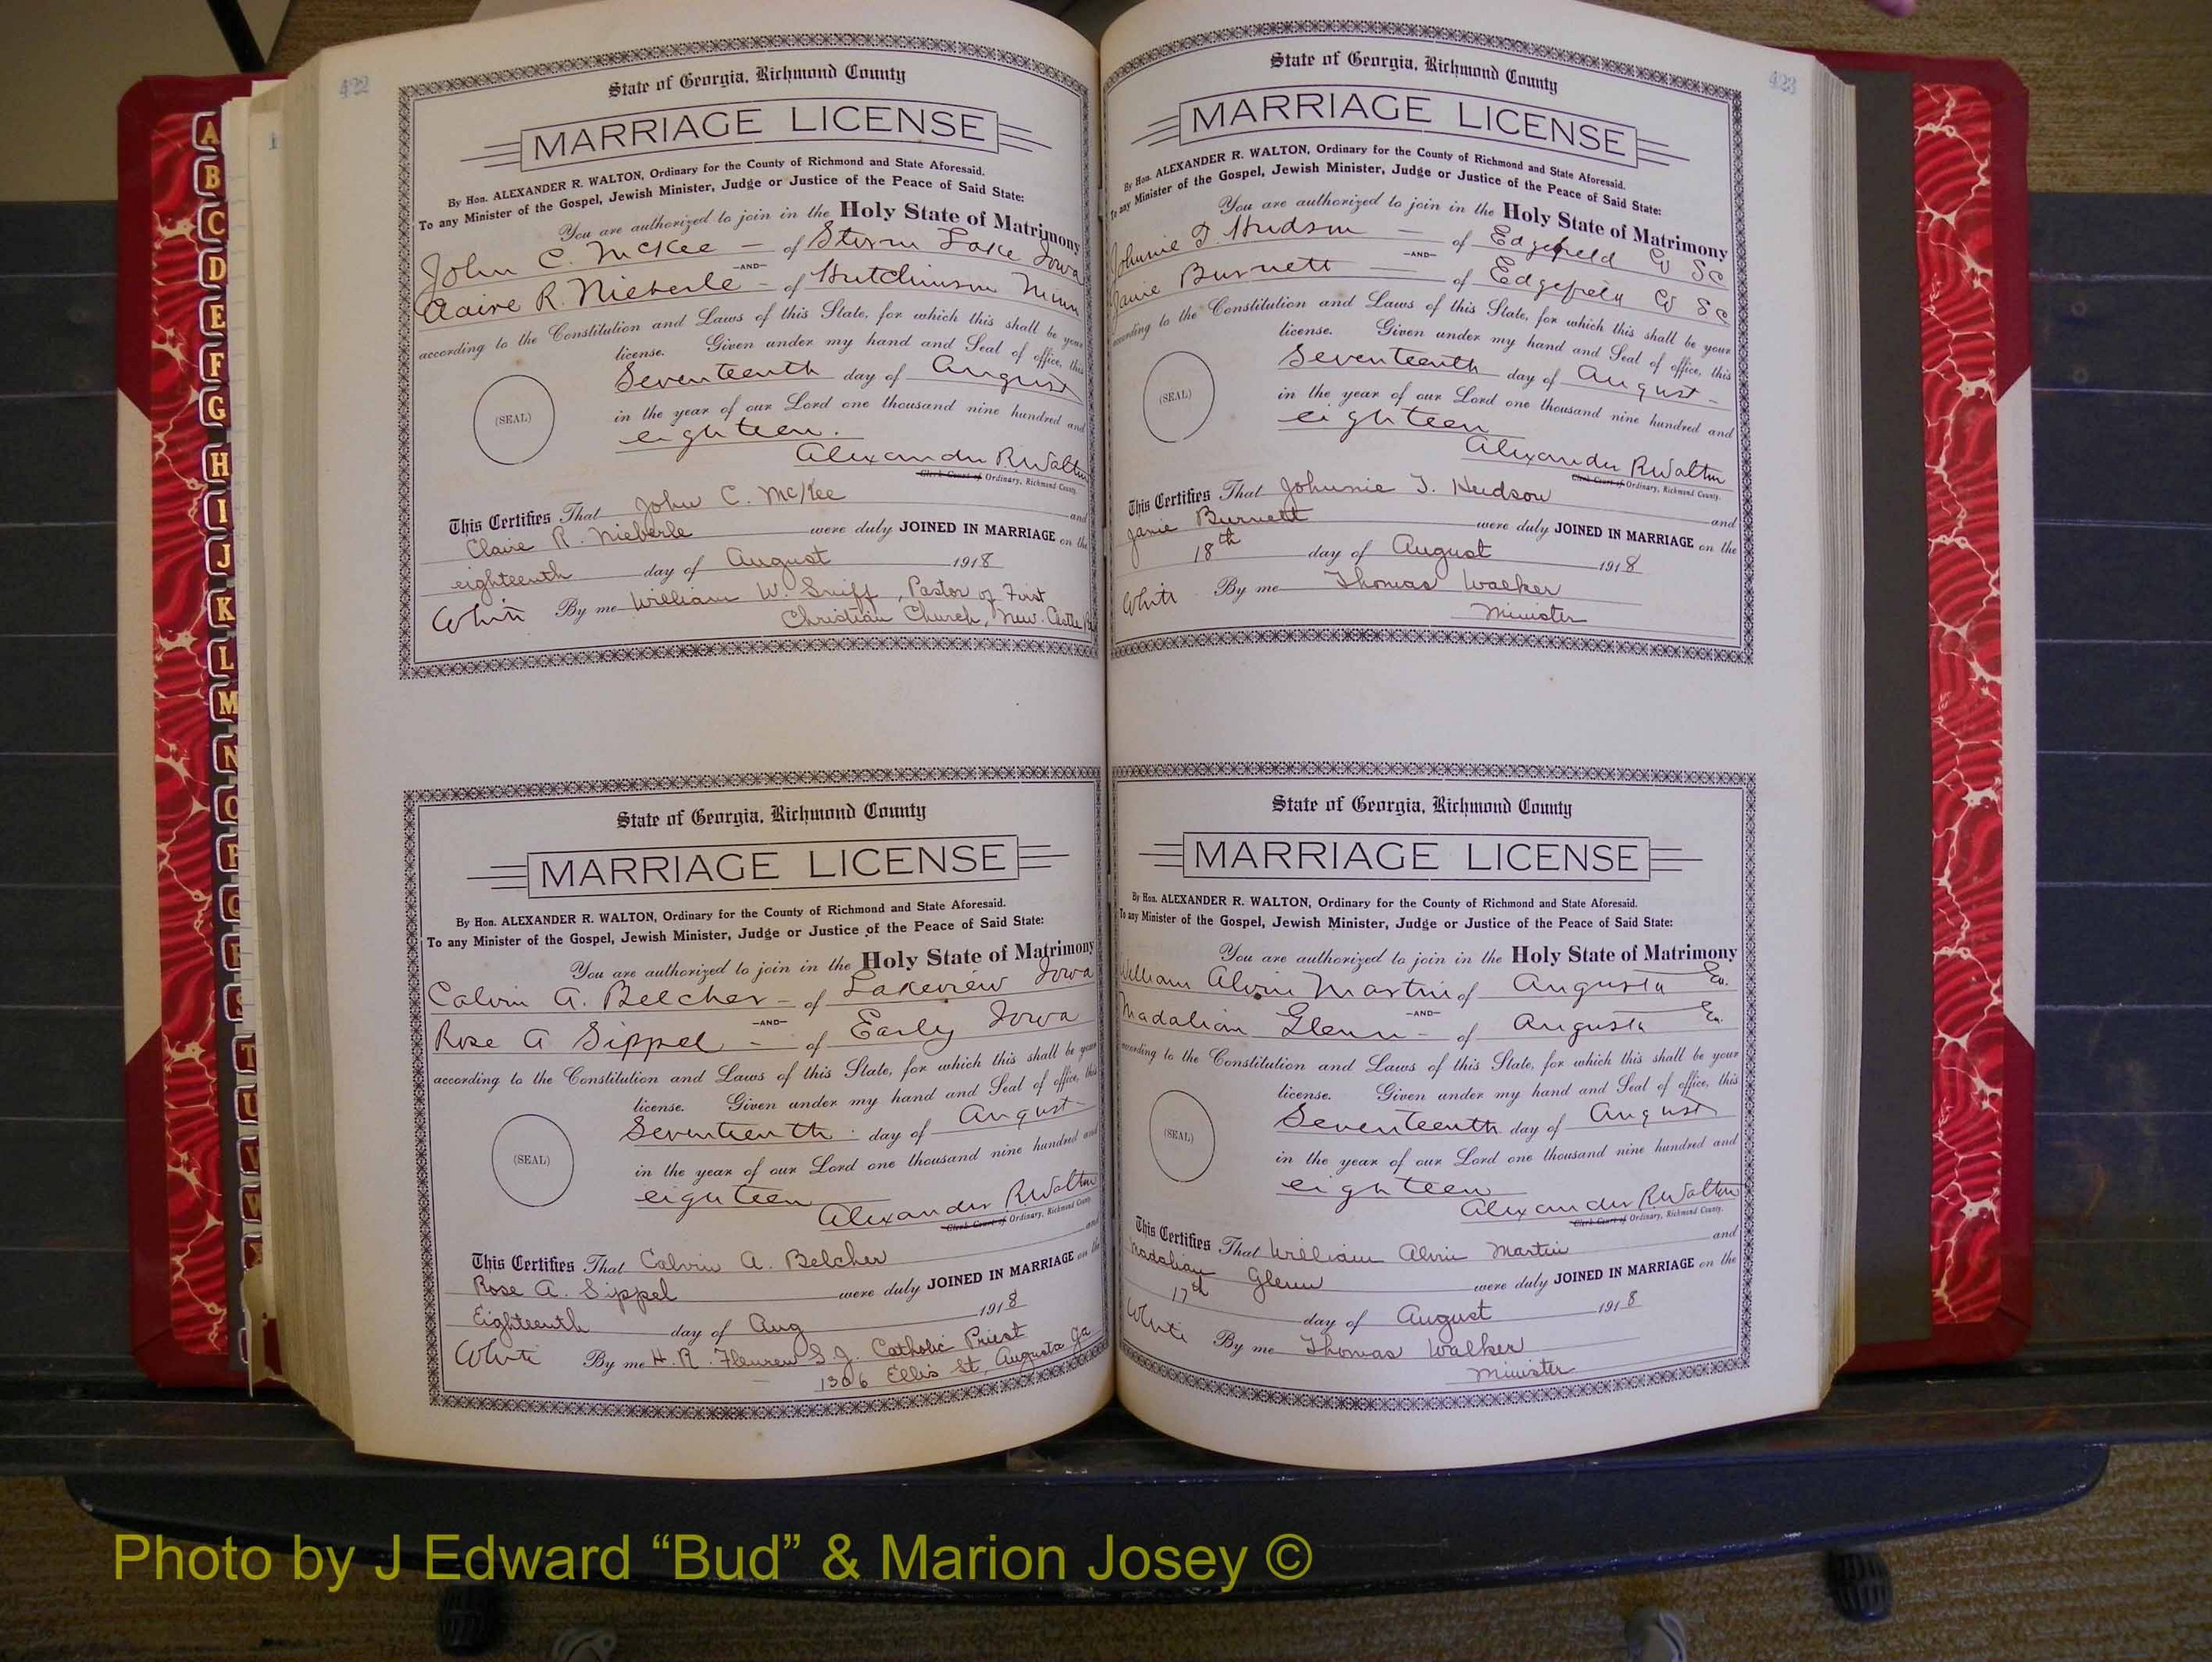 422
State of Georgia, Richmond County
MARRIAGE LICENSE
By Hon. ALEXANDER R. WALTON, Ordinary for the County of Richmond and State Aforesaid.
To any Minister of the Gospel, Jewish Minister, Judge or Justice of the Peace of Said State:
You are authorized to join in the Holy State of Matrimony
John C. McKee - of Storm Lake Iowa
-AND-
Claire R. Nieberle - of Hutchinson Minn
according to the Constitution and Laws of this State, for which this shall be your
license. Given under my hand and Seal of office, this
Seventeenth day of August
(SEAL)
in the year of our Lord one thousand nine hundred and
eighteen.
Alexander R. Walton
Clerk Court of Ordinary, Richmond County.
This Certifies That John C. McKee and
Claire R. Nieberle were duly JOINED IN MARRIAGE on the
eighteenth day of August 1918
White By me William W. Sniff, Pastor of First
Christian Church, New Castle
State of Georgia, Richmond County
MARRIAGE LICENSE
By Hon. ALEXANDER R. WALTON, Ordinary for the County of Richmond and State Aforesaid.
To any Minister of the Gospel, Jewish Minister, Judge or Justice of the Peace of Said State:
You are authorized to join in the Holy State of Matrimony
Calvin A. Belcher - of Lakeview Iowa
-AND-
Rose A Sippel - of Early Iowa
according to the Constitution and Laws of this State, for which this shall be your
license. Given under my hand and Seal of office, this
Seventeenth day of August
(SEAL)
in the year of our Lord one thousand nine hundred and
eighteen
Alexander R. Walton
Clerk Court of Ordinary, Richmond County.
This Certifies That Calvin A. Belcher and
Rose A. Sippel were duly JOINED IN MARRIAGE on the
Eighteenth day of Aug 1918
White By me H. R. Fleuren S.J. Catholic Priest
1306 Ellis St, Augusta Ga
423
State of Georgia, Richmond County
MARRIAGE LICENSE
By Hon. ALEXANDER R. WALTON, Ordinary for the County of Richmond and State Aforesaid.
To any Minister of the Gospel, Jewish Minister, Judge or Justice of the Peace of Said State:
You are authorized to join in the Holy State of Matrimony
Johnnie T. Hudson - of Edgefield Co SC
-AND-
Janie Burnett - of Edgefield Co SC
according to the Constitution and Laws of this State, for which this shall be your
license. Given under my hand and Seal of office, this
Seventeenth day of August -
(SEAL)
in the year of our Lord one thousand nine hundred and
eighteen
Alexander R. Walton
Clerk Court of Ordinary, Richmond County.
This Certifies That Johnnie T. Hudson and
Janie Burnett were duly JOINED IN MARRIAGE on the
18th day of August 1918
White By me Thomas Walker
Minister
State of Georgia, Richmond County
MARRIAGE LICENSE
By Hon. ALEXANDER R. WALTON, Ordinary for the County of Richmond and State Aforesaid.
To any Minister of the Gospel, Jewish Minister, Judge or Justice of the Peace of Said State:
You are authorized to join in the Holy State of Matrimony
William Alvin Martin of Augusta Ga.
-AND-
Madalian Glenn - of Augusta Ga.
according to the Constitution and Laws of this State, for which this shall be your
license. Given under my hand and Seal of office, this
Seventeenth day of August
(SEAL)
in the year of our Lord one thousand nine hundred and
eighteen
Alexander R. Walton
Clerk Court of Ordinary, Richmond County.
This Certifies That William Alvin Martin and
Madalian Glenn were duly JOINED IN MARRIAGE on the
17th day of August 1918
White By me Thomas Walker
Minister
A
B
C
D
E
F
G
H
I
J
K
L
M
N
O
P
Q
R
S
T
U
V
W
Photo by J Edward “Bud” & Marion Josey ©